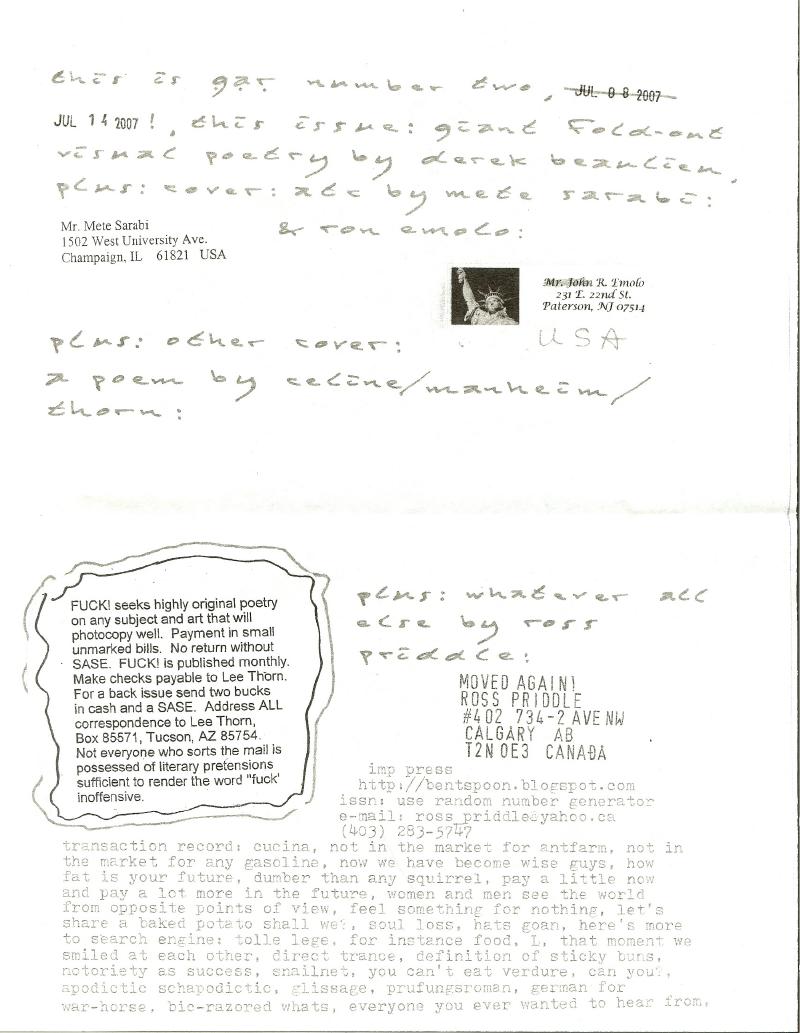 this is gar number two, JUL 08 2007
JUL 14 2007 !, this issue: giant fold-out
visual poetry by derek beaulieu,
plus: cover: atc by mete sarabi:
Mr. Mete Sarabi
1502 West University Ave.
Champaign, IL 61821 USA
& ron emolo:
Mr. John R. Emolo
231 E. 22nd St.
Paterson, NJ 07514
USA
plus: other cover:
a poem by celine/manheim/
thorn:
FUCK! seeks highly original poetry
on any subject and art that will
photocopy well. Payment in small
unmarked bills. No return without
SASE. FUCK! is published monthly.
Make checks payable to Lee Thorn.
For a back issue send two bucks
in cash and a SASE. Address ALL
correspondence to Lee Thorn,
Box 85571, Tucson, AZ 85754.
Not everyone who sorts the mail is
possessed of literary pretensions
sufficient to render the word "fuck'
inoffensive.
plus: whatever all
else by ross
priddle:
MOVED AGAIN!
ROSS PRIDDLE
#402 734-2 AVE NW
CALGARY AB
T2N 0E3 CANADA
imp press
http://bentspoon.blogspot.com
issn: use random number generator
e-mail: ross_priddle@yahoo.ca
(403) 283-5747
transaction record: cucina, not in the market for antfarm, not in
the market for any gasoline, now we have become wise guys, how
fat is your future, dumber than any squirrel, pay a little now
and pay a lot more in the future, women and men see the world
from opposite points of view, feel something for nothing, let's
share a baked potato shall we?, soul loss, hats goan, here's more
to search engine: tolle lege, for instance food, L, that moment we
smiled at each other, direct trance, definition of sticky buns,
notoriety as success, snailnet, you can't eat verdure, can you?,
apodictic schapodictic, glissage, prufungsroman, german for
war-horse, bic-razored whats, everyone you ever wanted to hear from,